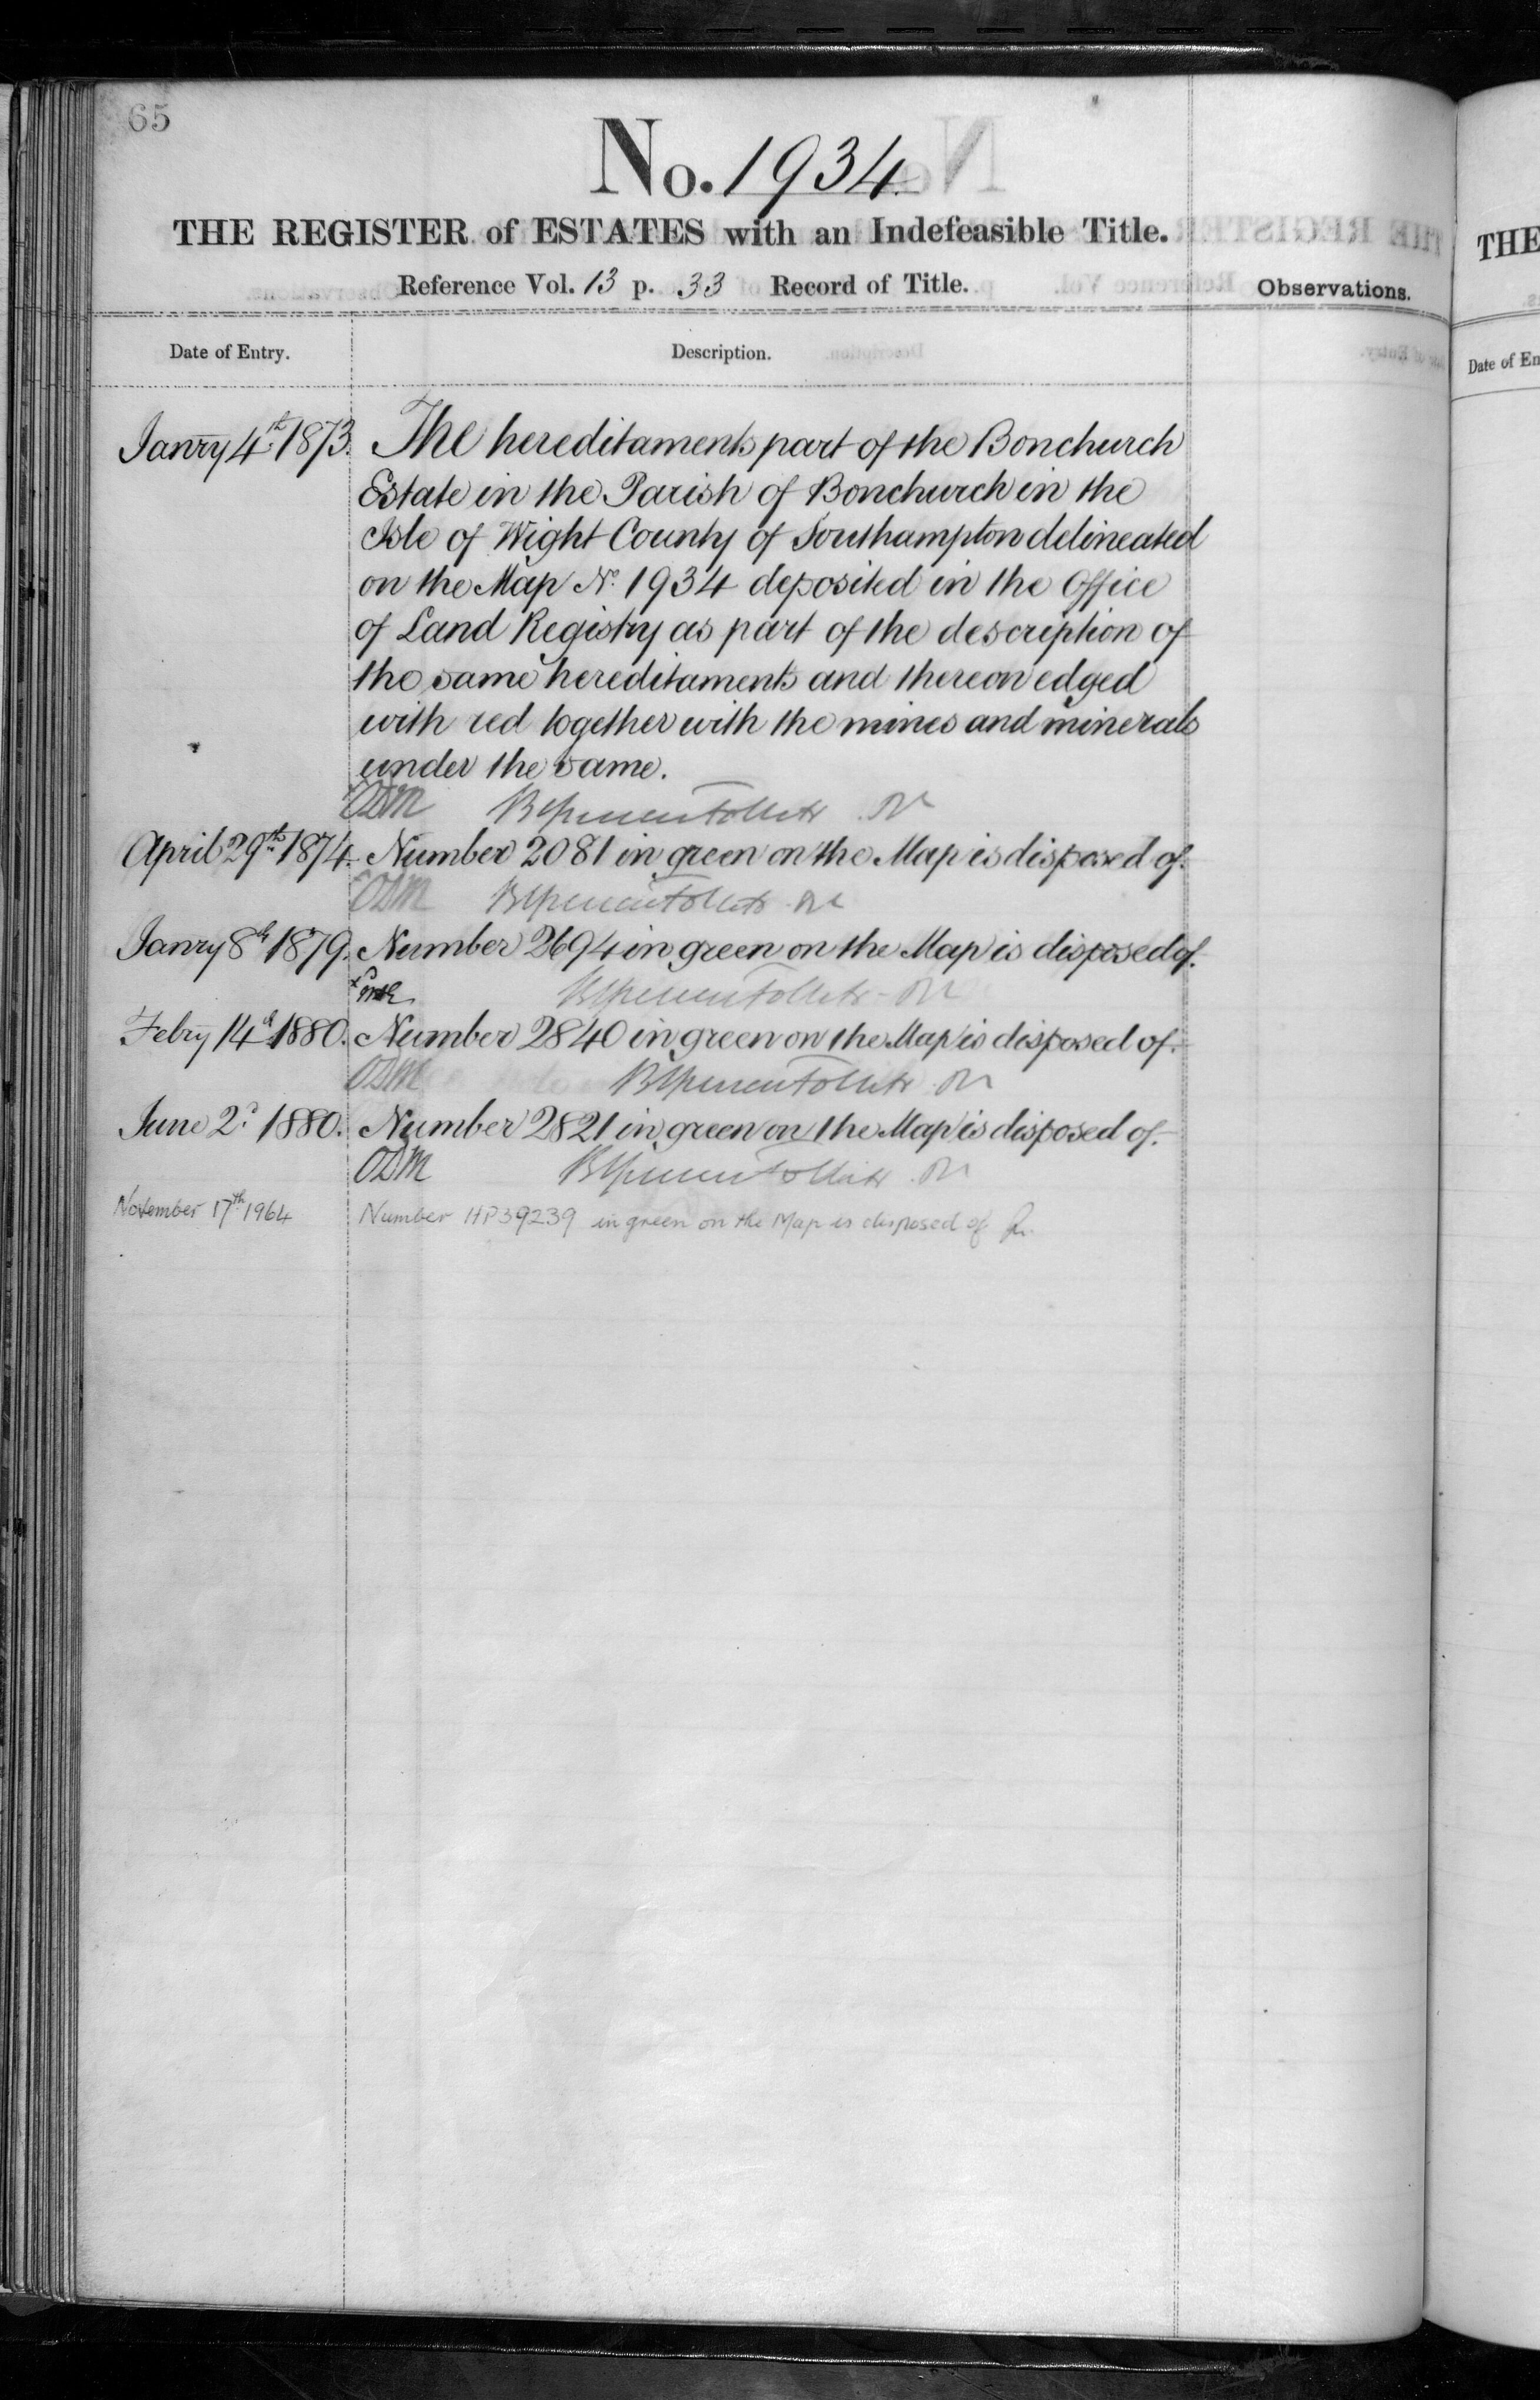 65
No. 1934.
THE REGISTER of ESTATES with an Indefeasible Title.
Reference Vol. 13 p. 33 Record of Title.
Observations.
Date of Entry.
Description.
Janry 4th 1873. The hereditaments part of the Bonchurch
Estate in the Parish of Bonchurch in the
Isle of Wight County of Southampton delineated
on the Map No. 1934 deposited in the Office
of Land Registry as part of the description of
the same hereditaments and thereon edged
with red together with the mines and minerals
under the same.
ODM
April 29th 1874. Number 2081 in green on the Map is disposed of.
ODM
Janry 8th 1879. Number 2694 in green on the Map is disposed of.
Febry 14th 1880. Number 2840 in green on the Map is disposed of.
ODM
June 2d 1880. Number 2821 in green on the Map is disposed of.
ODM
November 17th 1964 Number HP39239 in green on the Map is disposed of
THE
Date of En